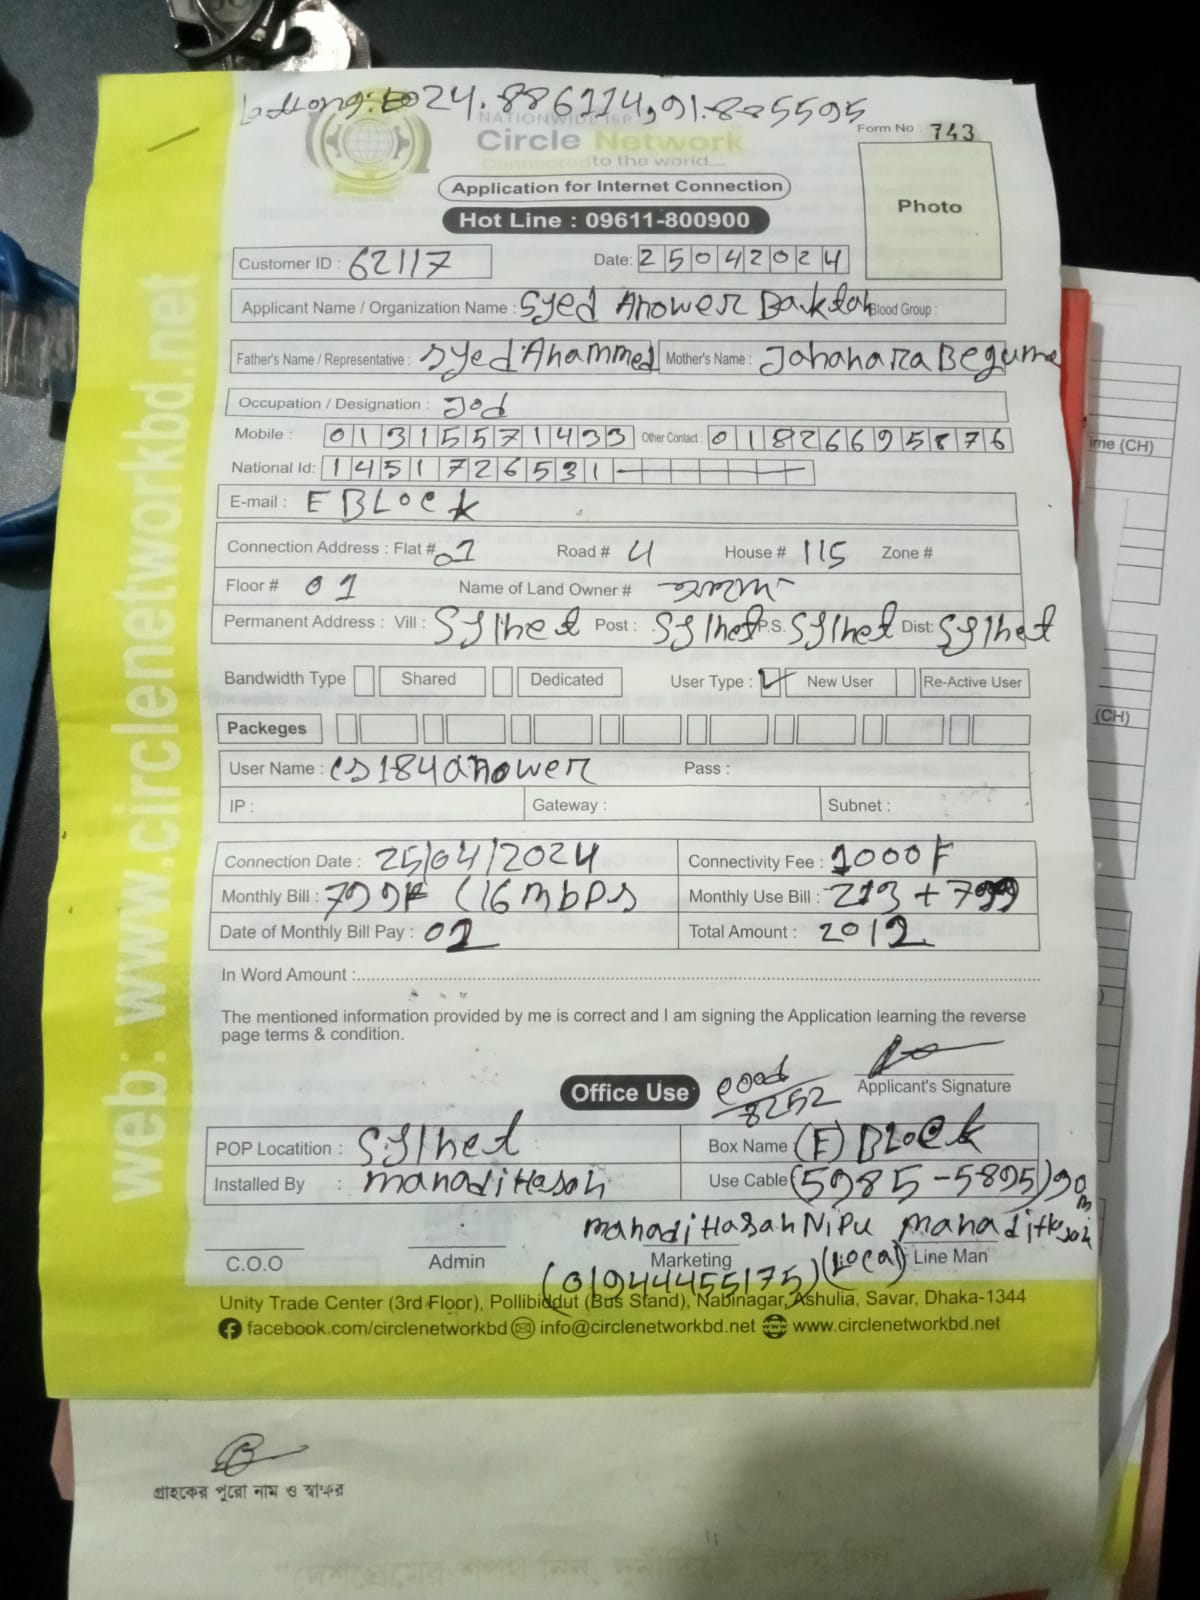 24.886114,91.885595
NATIONWIDE ISP
Circle Network
Connected to the world....
Form No 743
Photo
Application for Internet Connection
Hot Line : 09611-800900
Customer ID : 62117 Date: 25042024
Applicant Name / Organization Name : Syed Anower Baktah Blood Group :
Father's Name / Representative : Syed Ahammed Mother's Name : Jahanara Begume
Occupation / Designation : Job
Mobile : 01315571433 Other Contact : 01826695876
National Id: 1451726531
E-mail : E BLock
Connection Address : Flat # 01 Road # 4 House # 115 Zone #
Floor # 01 Name of Land Owner #
Permanent Address : Vill : Sylhet Post : Sylhet P.S. Sylhet Dist: Sylhet
Bandwidth Type Shared Dedicated User Type : New User Re-Active User
Packeges
User Name : cs184anower Pass :
IP : Gateway : Subnet :
Connection Date : 25/04/2024 Connectivity Fee : 1000F
Monthly Bill : 799F (16mbps Monthly Use Bill : 213 + 799
Date of Monthly Bill Pay : 02 Total Amount : 2012
In Word Amount :
The mentioned information provided by me is correct and I am signing the Application learning the reverse
page terms & condition.
Applicant's Signature
Office Use
8252
POP Locatition : Sylhet Box Name (E) BLock
Installed By : mahadi Hasan Use Cable (5985-5895)90m
mahadi Hasan Nipu mahadi Hasan
C.O.O Admin Marketing Line Man
(01944455175) (Local)
Unity Trade Center (3rd Floor), Pollibiddut (Bus Stand), Nabinagar, Ashulia, Savar, Dhaka-1344
facebook.com/circlenetworkbd info@circlenetworkbd.net www.circlenetworkbd.net
web: www.circlenetworkbd.net
গ্রাহকের পুরো নাম ও স্বাক্ষর
"দেশপ্রেমের শপথ নিন, দুর্নীতিকে বিদায় দিন"
ime (CH)
(CH)